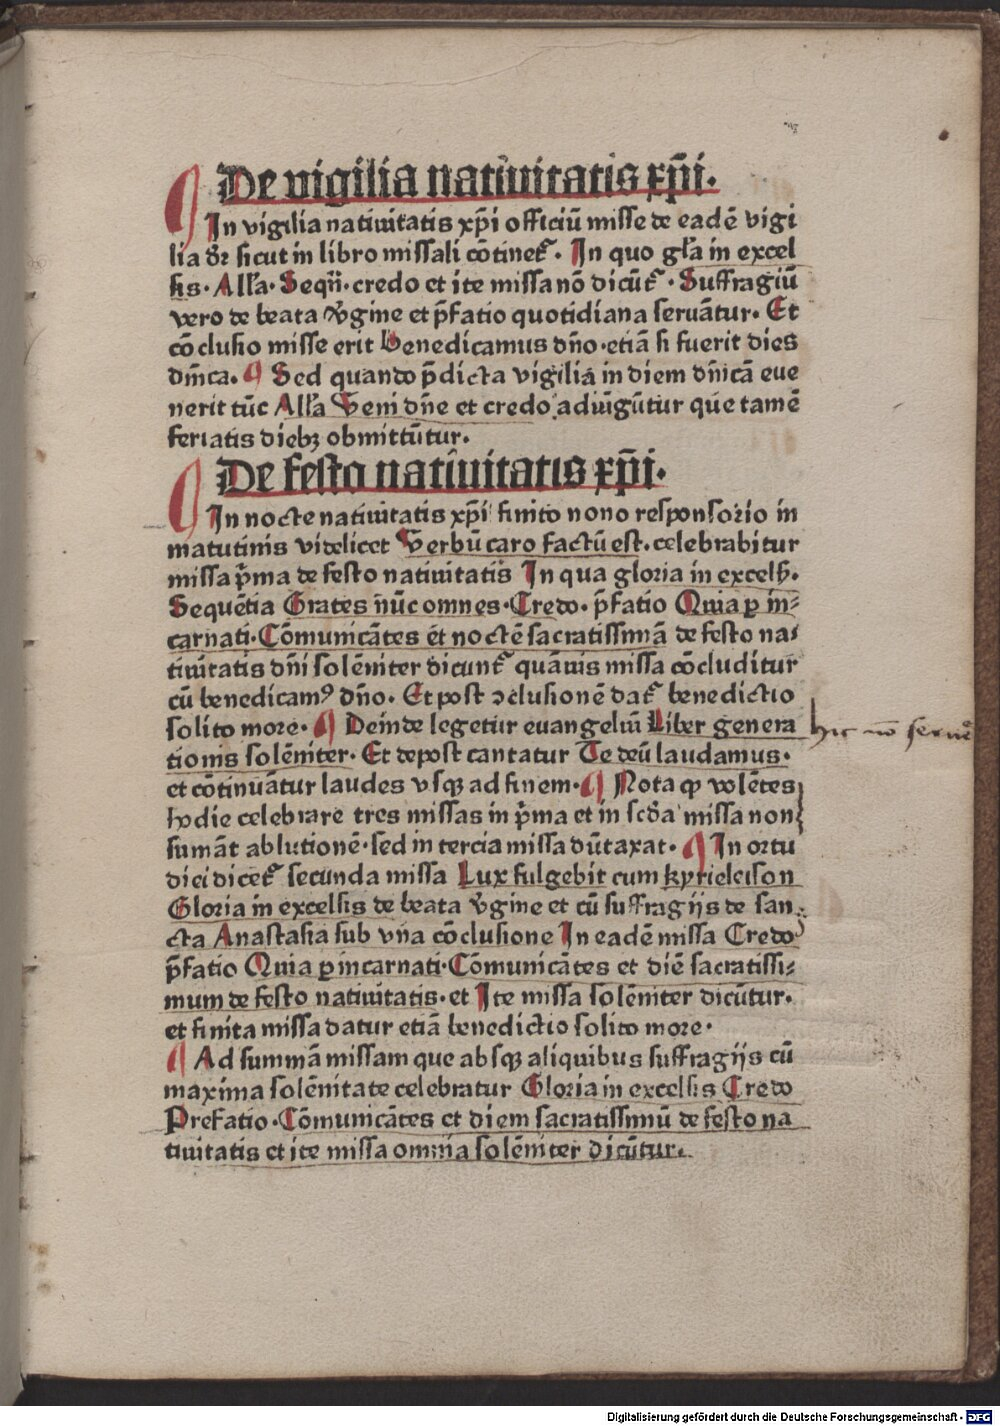 De vigilia natiuitatis xp̄i.
In vigilia natiuitatis xp̄i officiū misse de eadē vigi
lia dr sicut in libro missali cōtinet᷒. In quo glīa in excel
sis. Allīa. Seqn̄. credo et ite missa nō dicūt᷒. Suffragiū
vero de beata v̄gine et p̄fatio quotidiana seruātur. Et
cōclusio misse erit Benedicamus dn̄o. etiā si fuerit dies
dn̄ica. ¶ Sed quando p̄dicta vigilia in diem dn̄icā eue
nerit tūc Allīa Veni dn̄e et credo adiūgūtur que tamē
feriatis dieb⁊ obmittūtur.
De festo natiuitatis xp̄i.
In nocte natiuitatis xp̄i finito nono responsorio in
matutinis videlicet Verbū caro factū est. celebrabitur
missa p̄ma de festo natiuitatis In qua gloria in excels̄.
Sequētia Grates nūc omnes. Credo. p̄fatio Quia ꝑ in⸗
carnati. Cōmunicātes et noctē sacratissimā de festo na⸗
tiuitatis dn̄i solēniter dicunt᷒ quāuis missa cōcluditur
cū benedicamꝰ dn̄o. Et post ↄclusionē dat᷒ benedictio
solito more. ¶ Deinde legetur euangeliū Liber genera
hic nō seruat᷒
tionis solēniter. Et depost cantatur Te deū laudamus.
et cōtinuātur laudes vsqꝫ ad finem. ¶ Nota ꝙ volētes
hodie celebrare tres missas in p̄ma et in scd̄a missa non
sumāt ablutionē. sed in tercia missa dūtaxat. ¶ In ortu
diei dicet᷒ secunda missa Lux fulgebit cum kyrieleison
Gloria in excelsis de beata v̄gine et cū suffragijs de san
cta Anastasia sub vna cōclusione In eadē missa Credo
p̄fatio Quia ꝑ incarnati. Cōmunicātes et diē sacratissi⸗
mum de festo natiuitatis. et Ite missa solēniter dicūtur.
et finita missa datur etiā benedictio solito more.
¶ Ad summā missam que absqꝫ aliquibus suffragijs cū
maxima solēnitate celebratur Gloria in excelsis Credo
Prefatio. Cōmunicātes et diem sacratissimū de festo na
tiuitatis et ite missa omnia solēniter dicūtur.
Digitalisierung gefördert durch die Deutsche Forschungsgemeinschaft - DFG